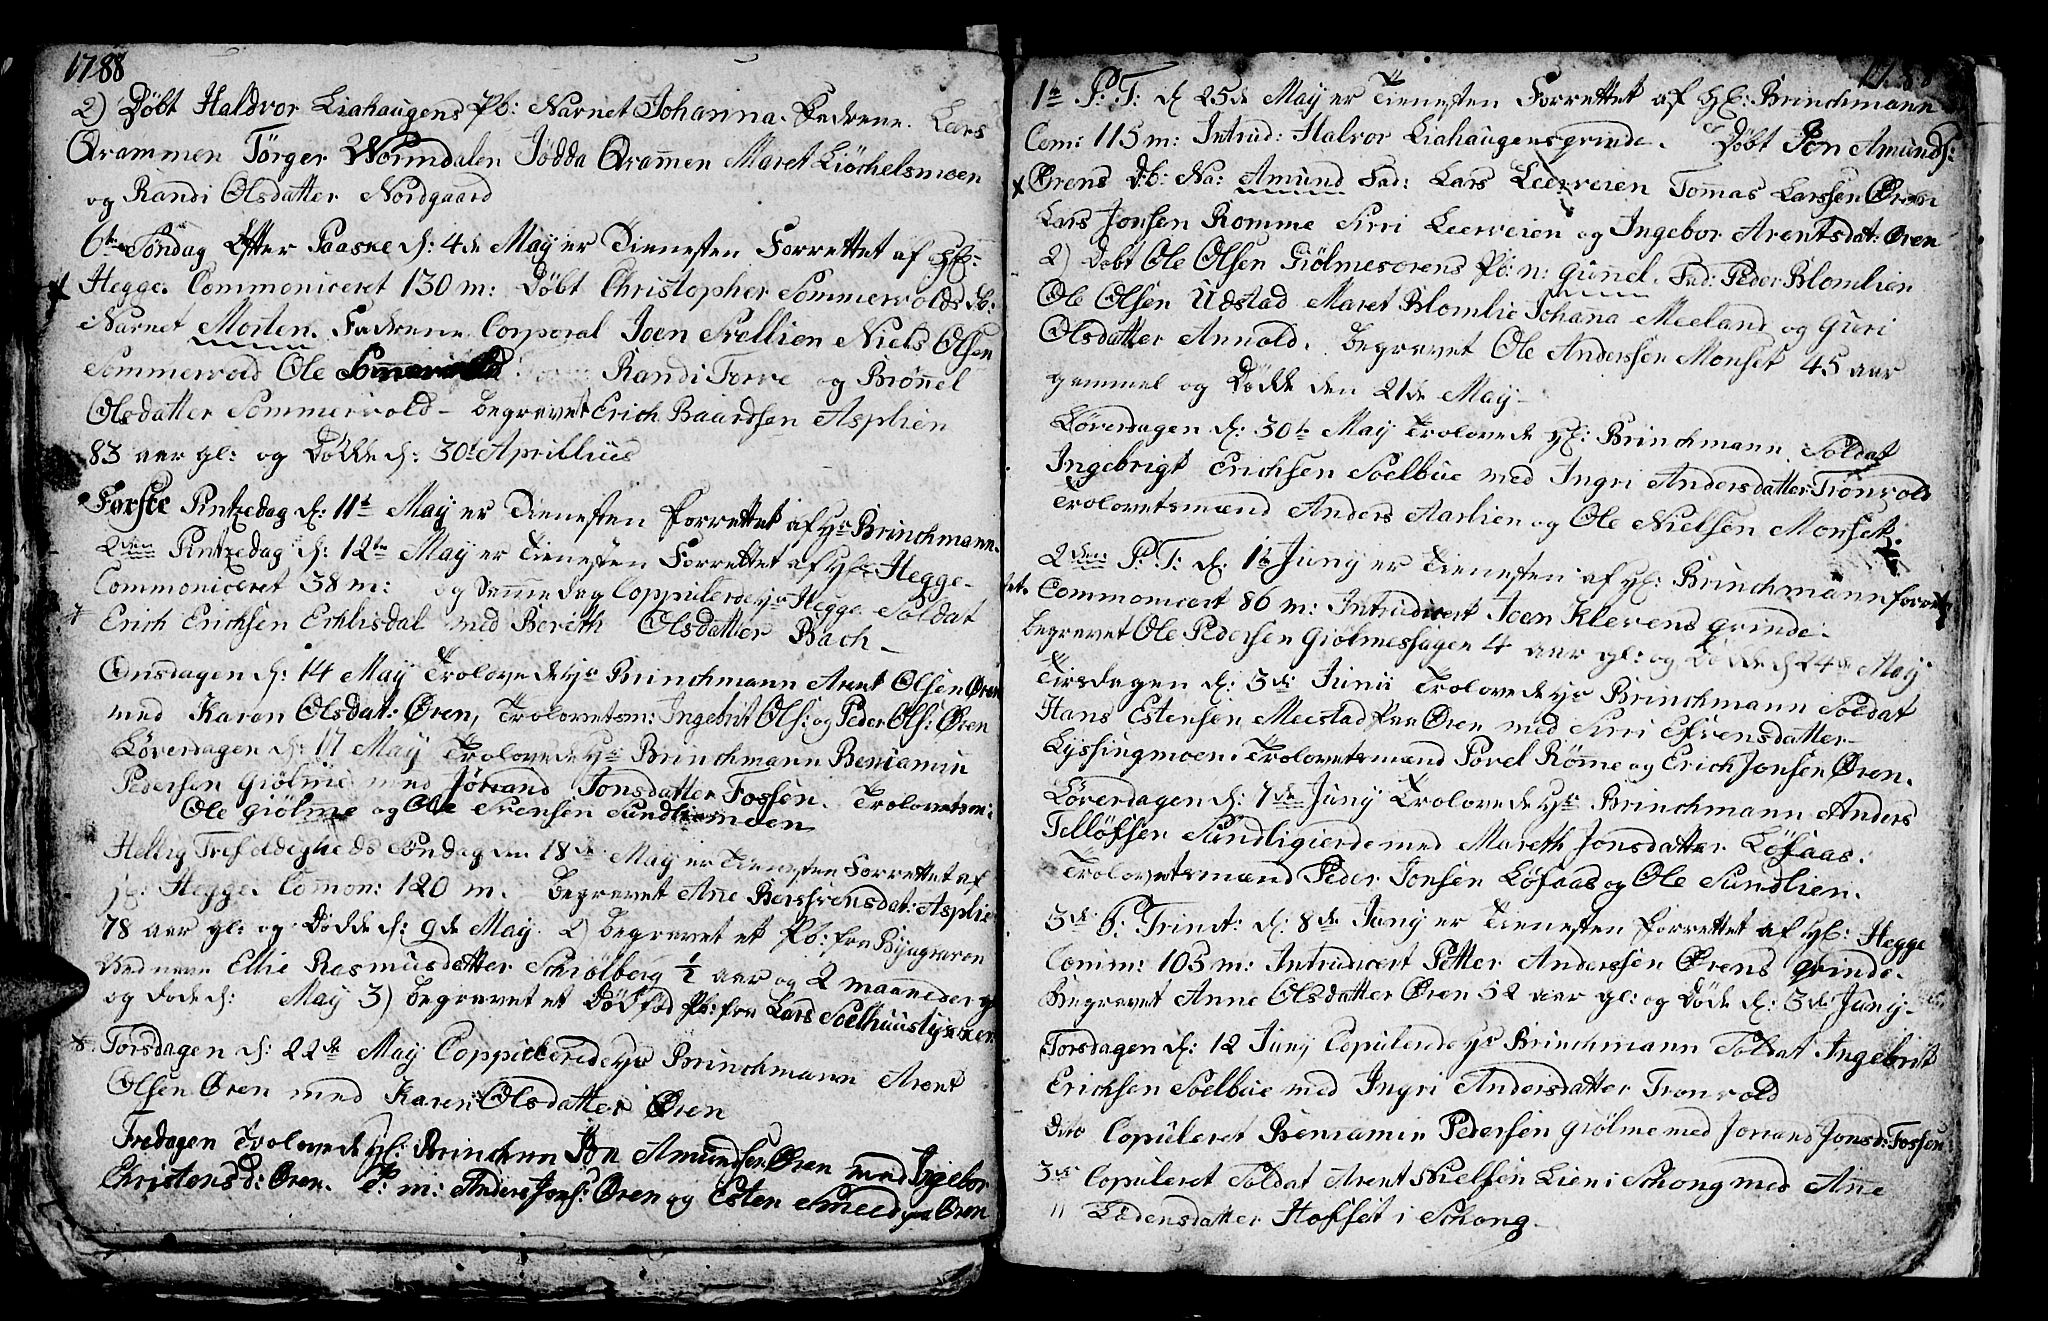 1788
2) Døbt Haldvor Liahaugens Pb: Navnet Johanna. Fadrene. Lars
Qrammen Törger Wormdalen Jödda Qrammen Maret Liöchelsmoen
og Randi Olsdatter Nordgaard
6te Søndag Efter Paaske d: 4de May er Tienesten Forrettet af Hr:
Hegge. Commoniceret 130 m: Døbt Christopher Sommervolds db:
Navnet Morten. Fadrene Corporal Joen Trellien Niels Olsen
Sommervold Ole Randi Torve og Brønnel
Olsdatter Sommervold – begravet Erich Baardsen Asplien
83 aar gl: og Døde d: 30t Aprillius
Første Pintzedag d: 11te May er Tienesten forrettet af Hr Brinchmann.
2den Pintzedag d: 12te May er Tienesten Forrettet af Hr: Hegge –
Commoniceret 38 m: og samme dag Coppulerede Hr Hegge Soldat
Erich Erichsen Echlisdal med Bereth Olsdatter Bach –
Onsdagen d: 14 May Trolovede Hr Brinchmann Arent Olsen Ören
med Karen Olsdat: Ören, Trolovetsm: Ingebrit Ols: og Peder Ols: Ören
Löverdagen d: 17 May Trolovede Hr Brinchmann Beniamin
Pedersen Giölme med Jörand Jonsdatter Fossen. Trolovetsm:
Ole Giölme og Ole Svensen Sundlismoen
Hellig Trefoldigheds Søndag den 18de May er Tienesten Forrettet af
Hr: Hegge. Comon: 120 m. begravet Ane Berssvensdat: Asplie
78 aar gl: og Døde d: 9de May. 2) begravet et Pb: fra Bynagreven
ved navn Ellie Rasmusdatter Schiölberg 1/2 aar og 2 maaneder gl
og døde d: May 3) begravet et Dødfød Pb: fra Lars Soelhuustyeren
Torsdagen d: 22de May Coppulerede Hr Brinchmann Arent
Olsen Ören med Karen Olsdatter Ören
Fredagen Trolovede Hr: Brinchm Jon Amundsen Ören med Ingebor
Christensd: Ören. T: m: Anders Jons: Ören og Esten Smed paa Ören
1788
1te P: T: d 25de May er Tienesten Forrettet af Hr: Brinchmann
Com: 115 m: Intrud: Halvor Liahaugens grinde. Døbt Jon Amunds:
Örens db: Na: Amund Fad: Lars Leerveien Tomas Larssen Ören
Lars Jonsen Romme Sirri Leerveien og Ingebor Arentsdat: Ören
2) Døbt Ole Olsen Giölmesørens Pb: n: Gunel. Fad: Peder Blomlien
Ole Olsen Udstad Maret Blomlie Johanna Meeland og Guri
Olsdatter Annold. begravet Ole Anderssen Monset 45 aar
gammel og Døde den 21de May –
Löverdagen d: 30te May Trolovede Hr: Brinchmann Soldat
Ingebrigt Erichsen Soelbue med Ingri Andersdatter Tronvold
Trolovetsmænd Anders Aarlien og Ole Nielsen Monset:
2den P: T: d: 1te Juny er Tienesten af Hr: Brinchmann forret
tet. Commonicert 86 m: Intrudicert Joen Klevens grinde.
begravet Ole Pedersen Giölmeshagen 4 aar gl: og Døde d 24de May
Tirsdagen d: 3de Junii Trolovede Hr Brinchmann Soldat
Hans Estensen Meestad paa Ören med Sirri Efvensdatter –
Lyssingmoen. Trolovetsmænd Povel Römme og Erich Jonsen Ören.
Löverdagen d: 7de Juny Trolovede Hr Brinchmann Anders
Tellöfsen Sundligierde med Mareth Jonsdatter Löfaas.
Trolovetsmænd Peder Jonsen Löfaas og Ole Sundlien.
3de S. Trinit: d: 8de Juny er Tienesten forrettet af Hr: Hegge
Comm: 105 m: Intrudicert Petter Anderssen Örens grinde.
Begravet Anne Olsdatter Ören 52 aar gl: og Døde d: 3de Juny –
Torsdagen d: 12 Juny Copulerede Hr Brinchmann Soldat Ingebrit
Erichsen Soelbue med Ingri Andersdatter Tronvold
Dito Copuleret Beniamin Pedersen Giölme med Jorand Jonsd: Fossen
3de Copuleret Soldat Arent Nielsen Lien i Schong med Ane
" Lodensdatter Hofset i Schong –